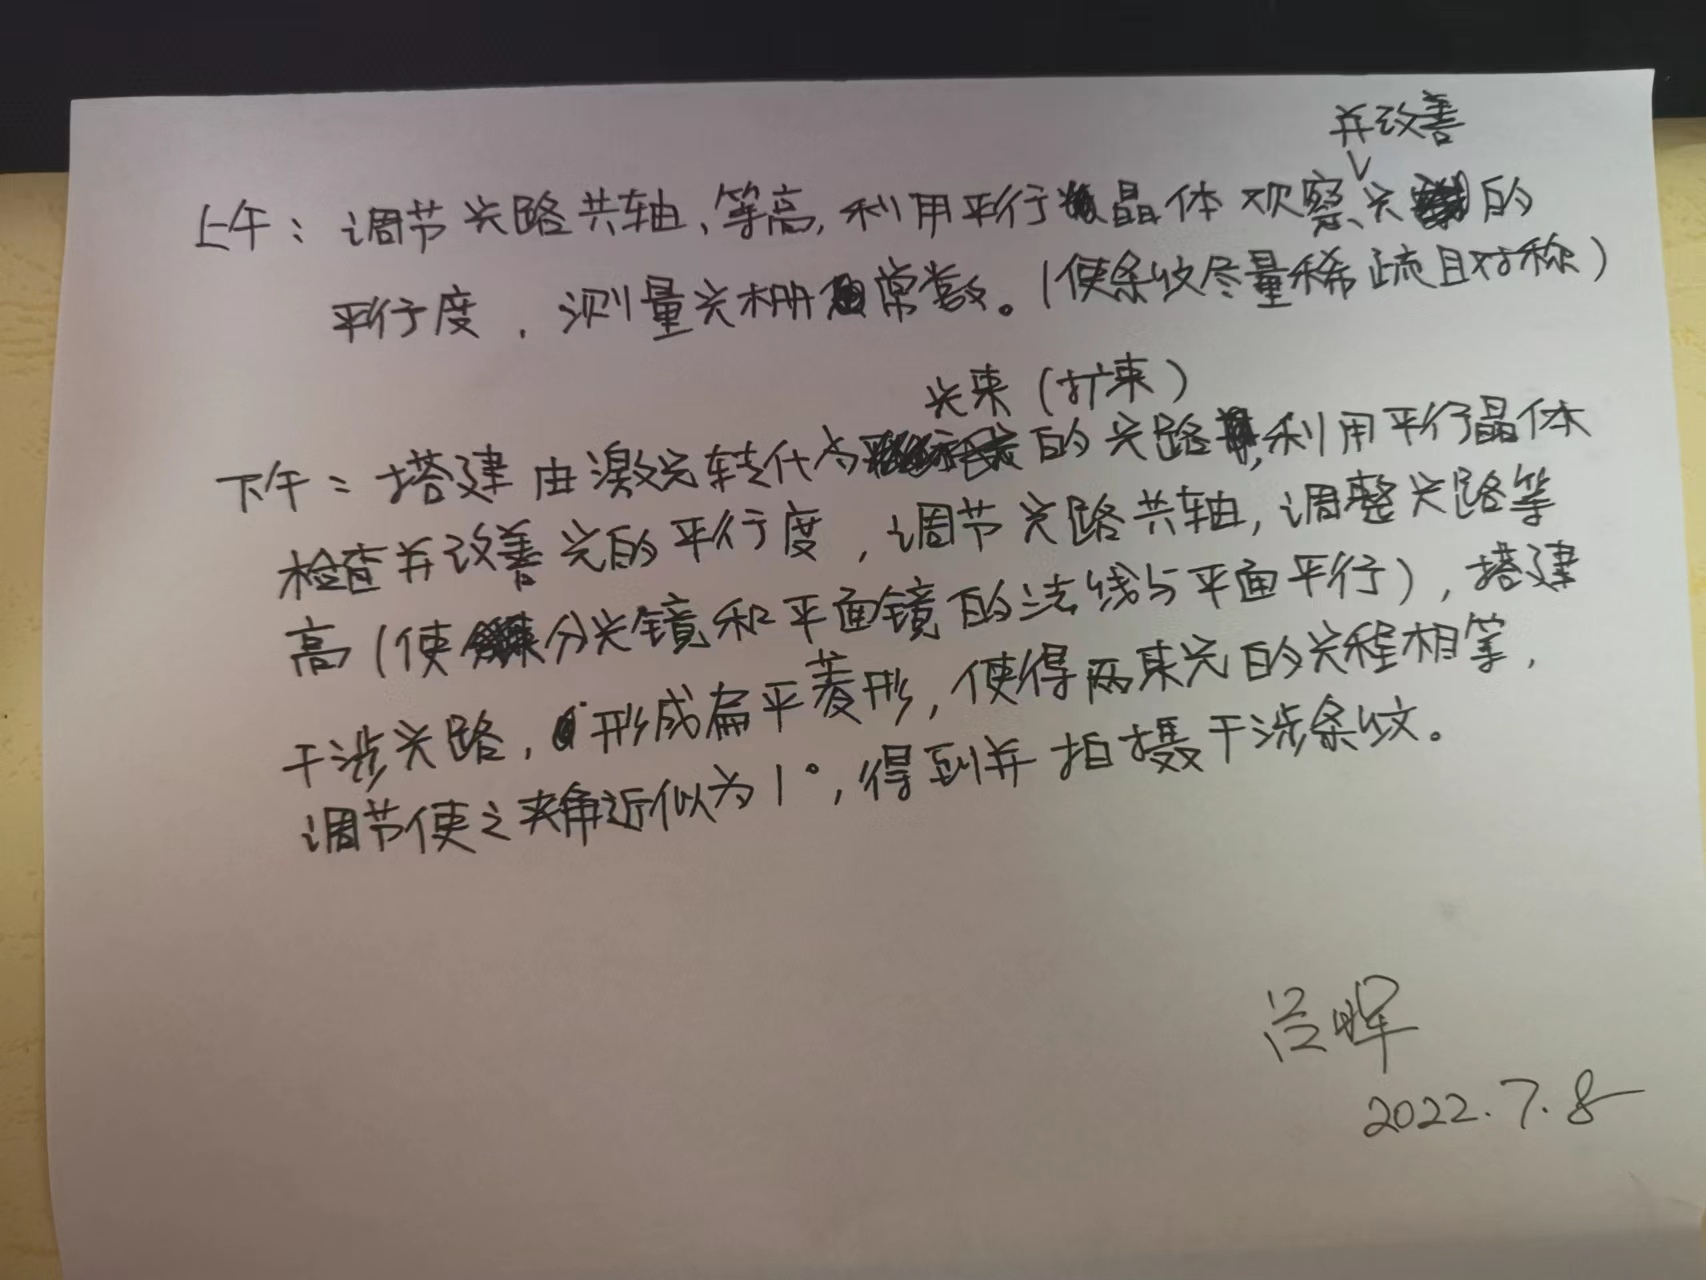 并改善
上午：调节光路共轴、等高，利用平行晶体观察、光的
平行度，测量光栅常数。（使条纹尽量稀疏且对称）
光束（扩束）
下午：搭建由激光转化为的光路，利用平行晶体
检查并改善光的平行度，调节光路共轴，调整光路等
高（使分光镜和平面镜的法线与平面平行），搭建
干涉光路，形成扁平菱形，使得两束光的光程相等，
调节使之夹角近似为1°，得到并拍摄干涉条纹。
2022.7.8